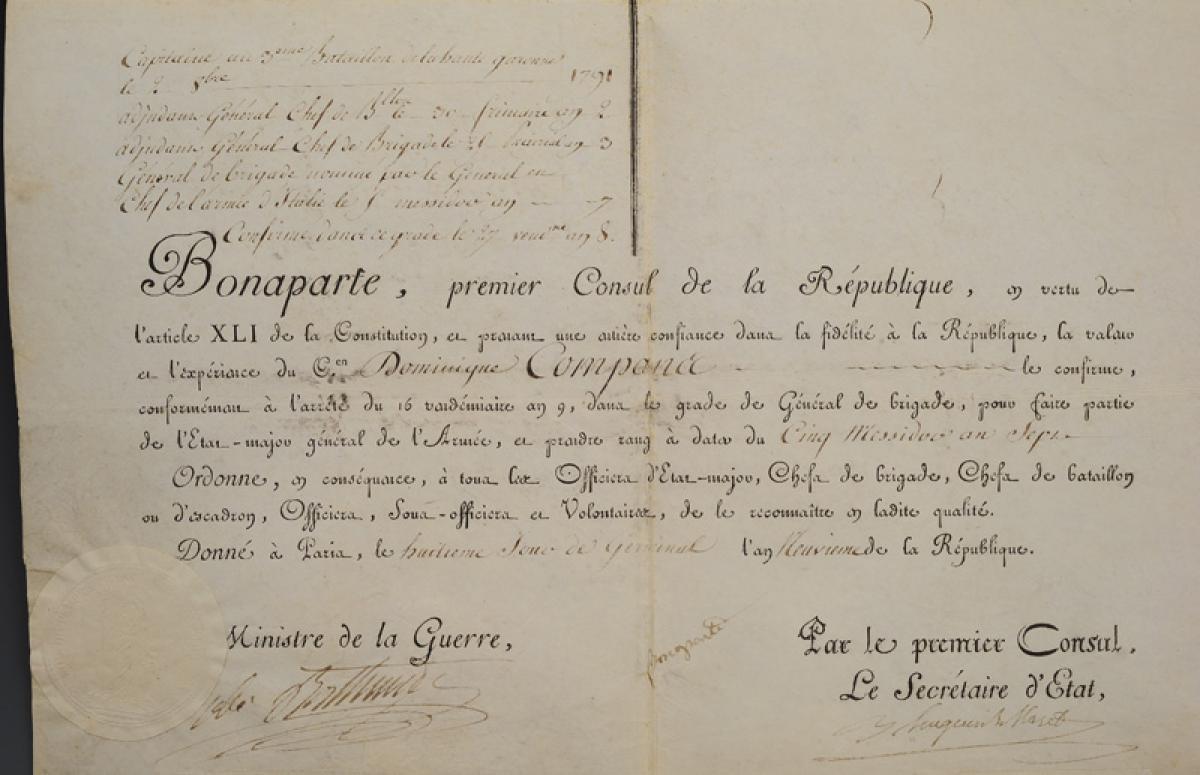 Capitaine au 3eme Bataillon de la haute garonne
le 2 8bre 1791
adjudant Général Chef de Blon le 30 frimaire an 2
adjudant Général Chef de Brigade le 21 Prairial an 3
Général de brigade nommé par le Général en
Chef de l'armée d'Italie le 5 messidor an 7
Confirmé dans ce grade le 27 vendre an 8.
Bonaparte, premier Consul de la République, en vertu de
l'article XLI de la Constitution, et prenant une entière confiance dans la fidélité à la République, la valeur
et l'expérience du Cen Dominique Compans le confirme,
conformément à l'arrêté du 16 vendémiaire an 9, dans le grade de Général de brigade, pour faire partie
de l'Etat-major général de l'Armée, et prendre rang à dater du Cinq Messidor an Sept
Ordonne, en conséquence, à tous les Officiers d'Etat-major, Chefs de brigade, Chefs de bataillon
ou d'escadron, Officiers, Sous-officiers et Volontaires, de le reconnaître en ladite qualité.
Donné à Paris, le huitieme Jour de Germinal l'an Neuvieme de la République.
Ministre de la Guerre,
Par le premier Consul.
Le Secrétaire d'Etat,
Hugues B. Maret